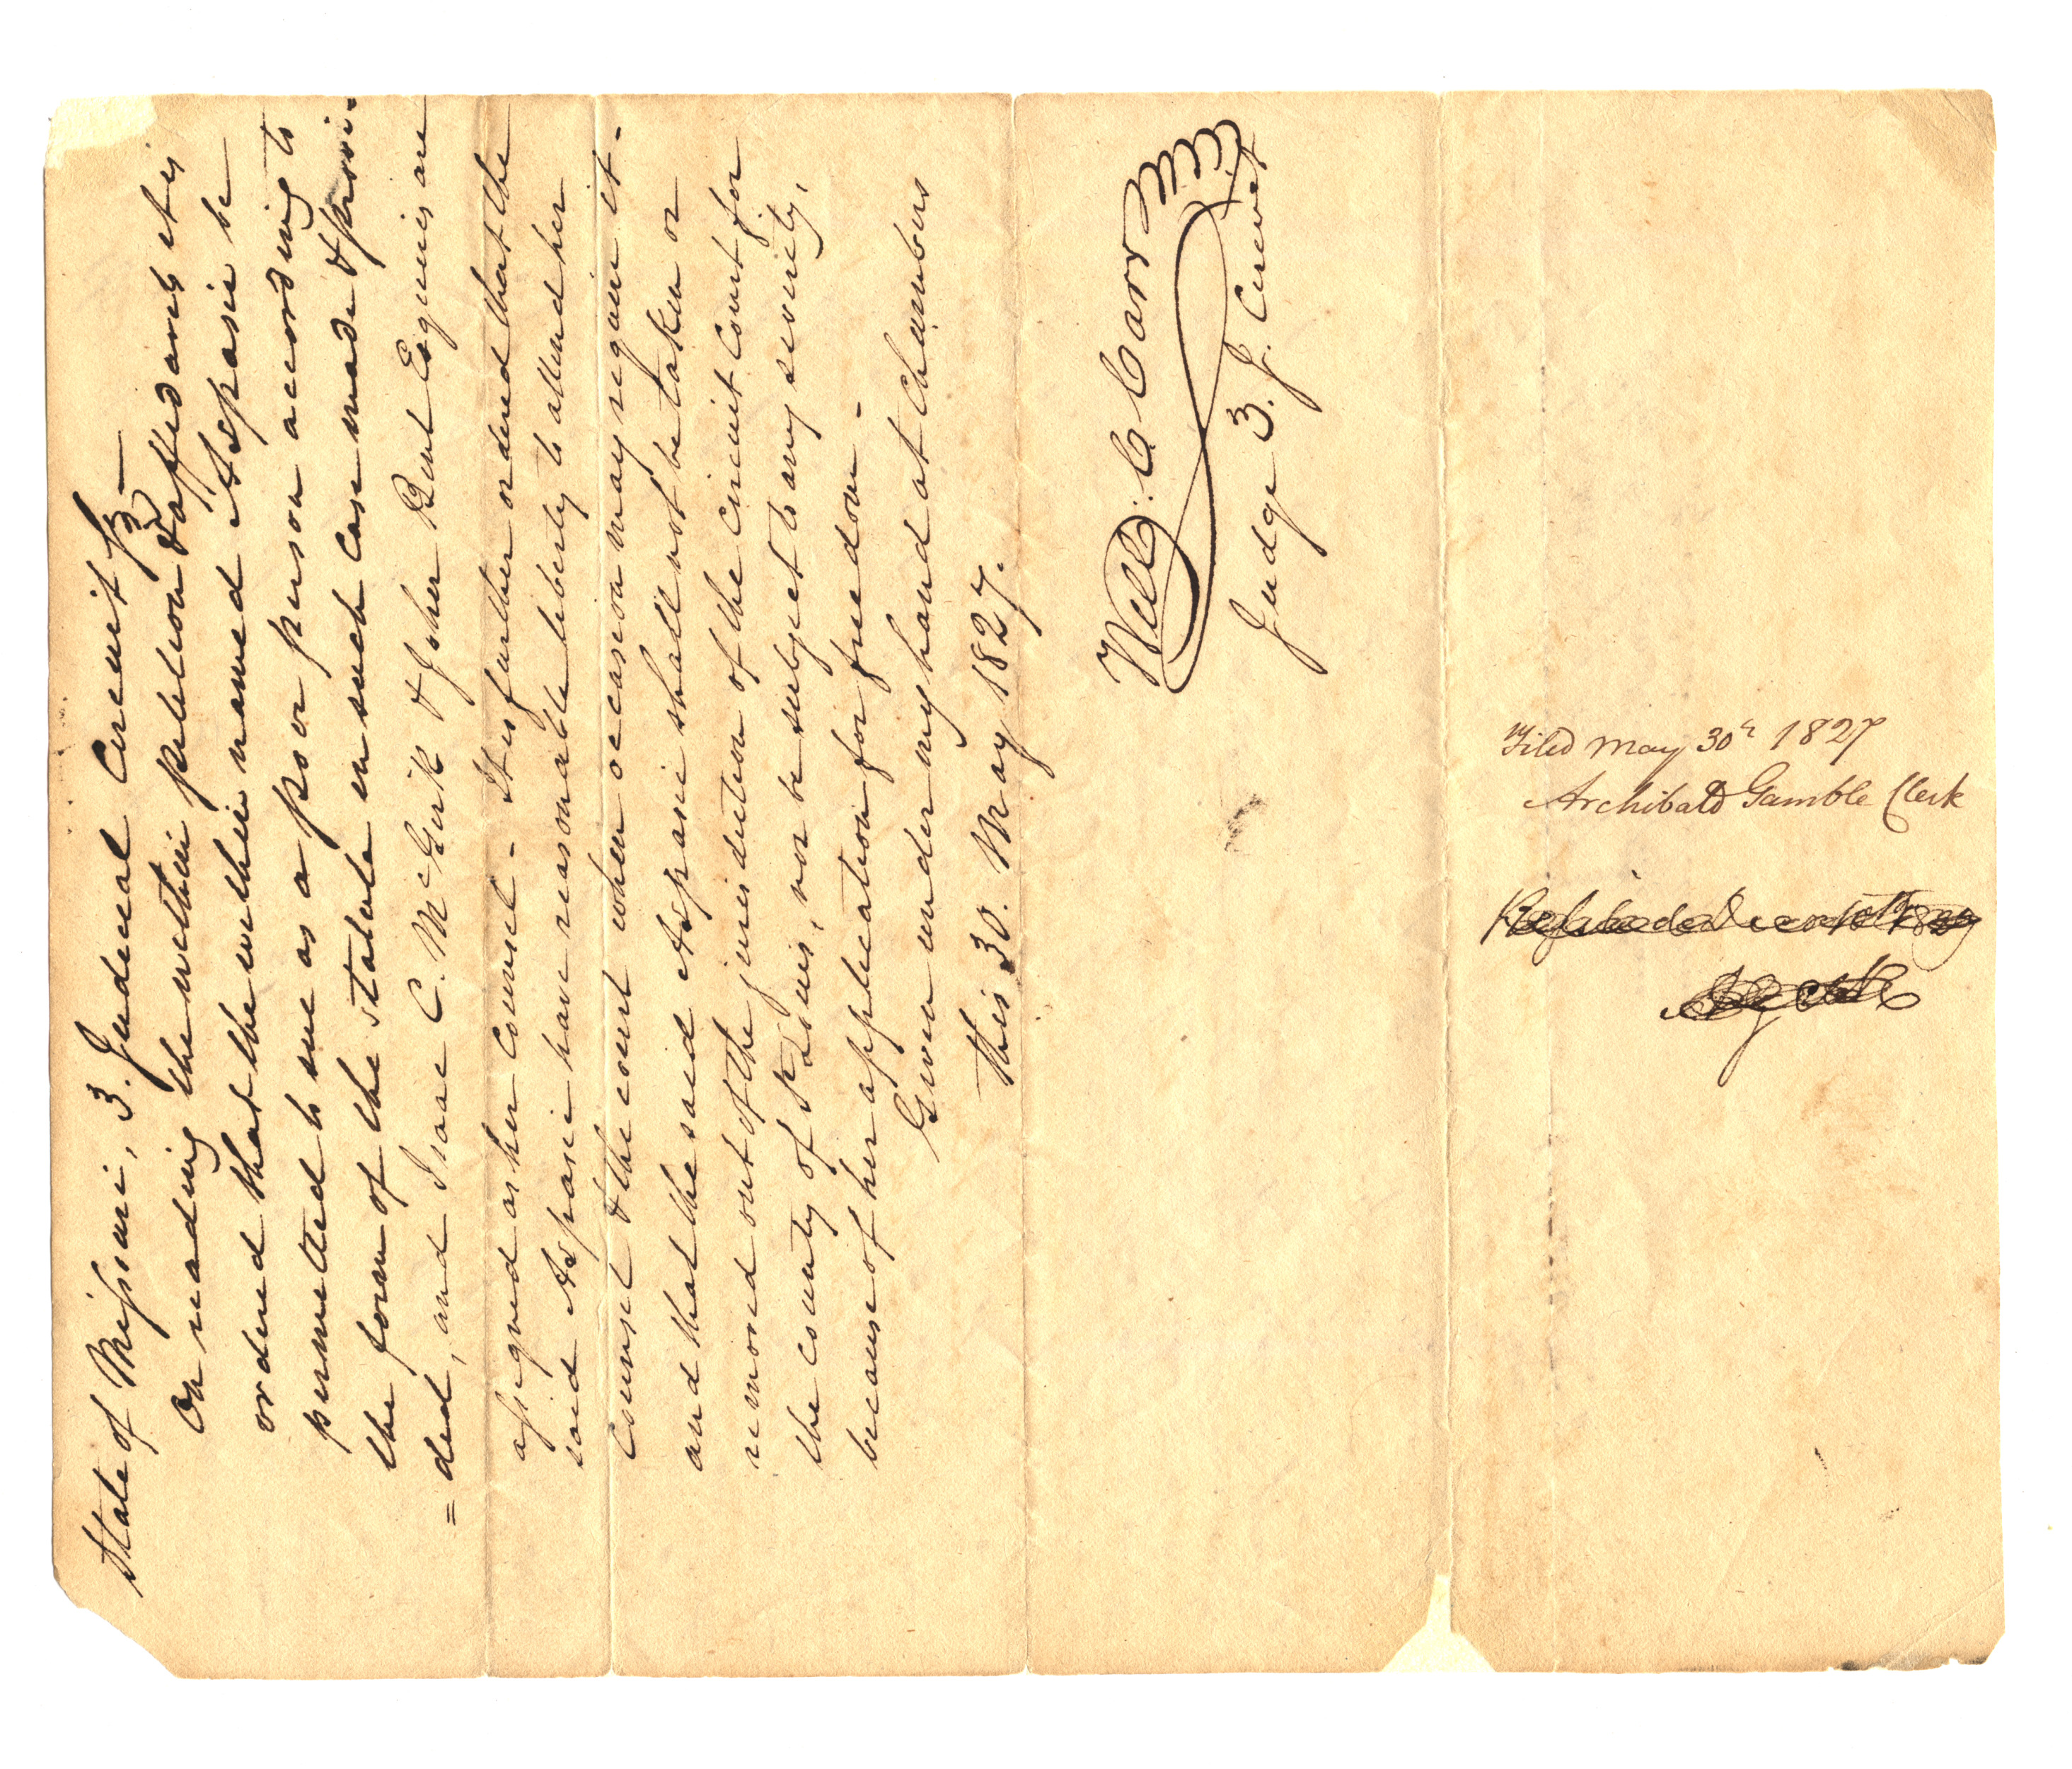 State of Missouri, 3. Judicial Circuit
On reading the within petition & affidavit it is
ordered that the within named Aspasie be
permitted to sue as a poor person according to
the form of the statute in such case made & provi-
=ded, and Isaac C. McGirk & John Bent Esquires are
assigned as her counsel - It is further ordered that the
said Aspasie have reasonable liberty to attend her
counsel & the court when occasion may require it -
and that the said Aspasie shall not be taken or
removed out of the jurisdiction of the Circuit Court for
the county of St Louis, nor be subject to any severity,
because of her application for freedom -
Given under my hand at Chambers
this 30. May 1827.
Will: C. Carr
Judge 3. J. Circuit
Filed May 30th 1827
Archibald Gamble Clerk